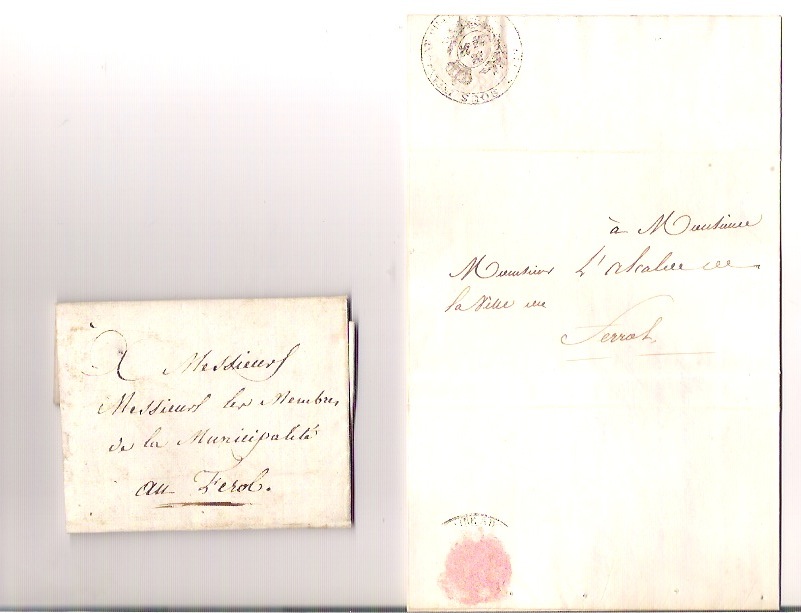 À Messieurs
Messieurs les Membres
de la Municipalité
au Ferol.
à Monsieur
Monsieur L'alcalde de
la Ville de
Ferrol
SOUS